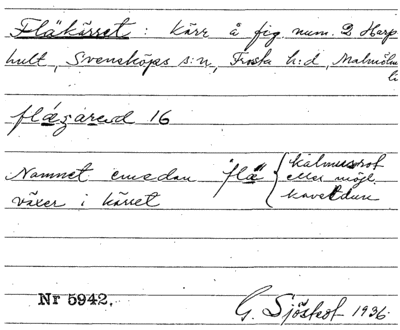 Fläkärret : Kärr å fig. num. 2 Harp
hult, Svensköps s:n, Frosta h:d, Malmöhus
l:
16
Namnet emedan "flä" { kalmusrot
eller möjl.
kaveldun
växer i kärret
Nr 5942.
G. Sjöskof 1936.